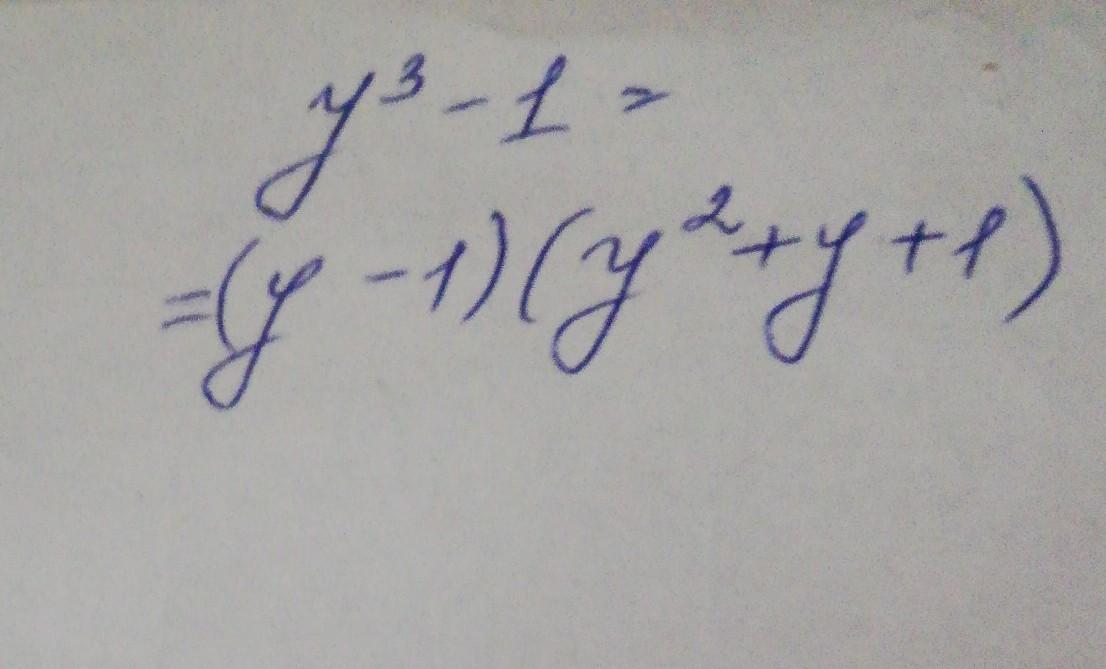 y³ - 1 =
= (y - 1)(y² + y + 1)